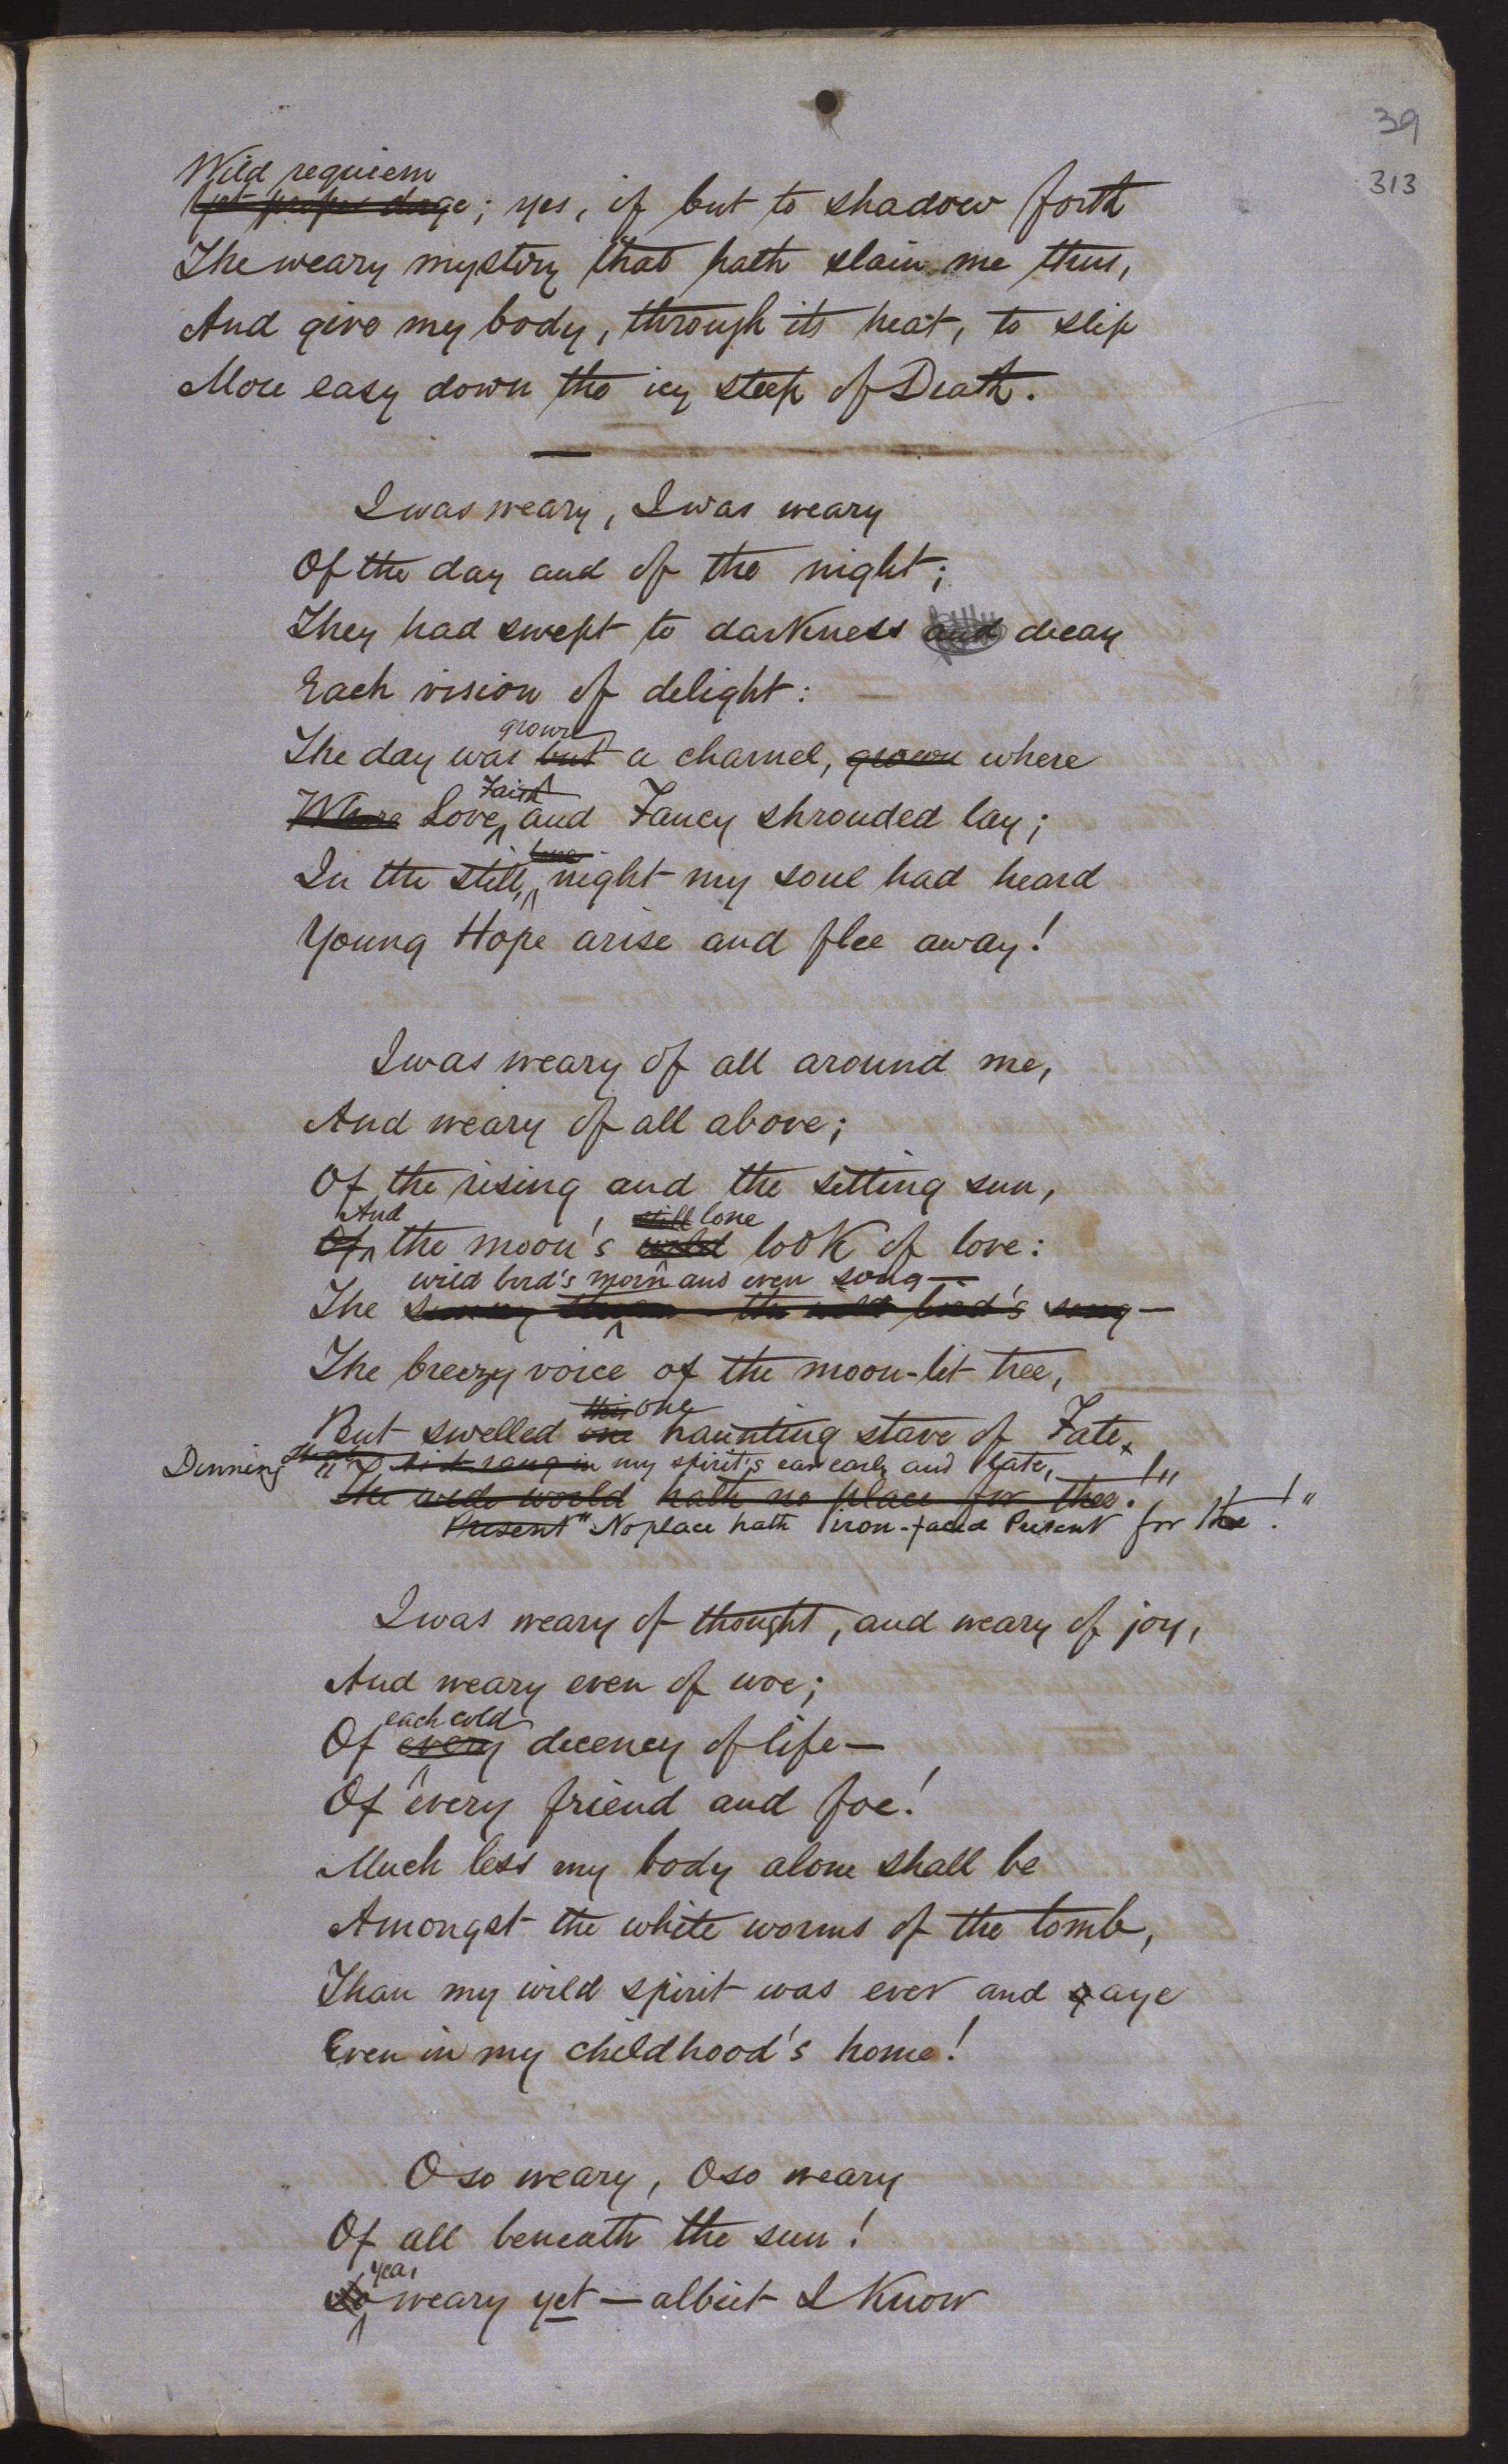 39
313
Wild requiem
; yes, if but to shadow forth
The weary mystery that hath slain me thus,
And give my body, through its heat, to slip
More easy down the icy steep of Death.
I was weary, I was weary
Of the day and of the night;
They had swept to darkness and decay
Each vision of delight:
grown
The day was but a charnel, grown where
Faith
Where Love, and Fancy shrouded lay;
lone
In the still, night my soul had heard
Young Hope arise and flee away!
I was weary of all around me,
And weary of all above;
Of the rising and the setting sun,
And still lone
Of the moon's wild look of love:
wild bird's morn and even song—
The the wild bird's song—
The breezy voice of the moon-lit tree,
this one
But swelled one haunting stave of Fate
Dinning in my spirit's ear early and late,
The wide world hath no place for thee.!"
Present "No place hath iron-faced Present for thee!"
I was weary of thought, and weary of joy,
And weary even of woe;
each cold
Of every decency of life—
Of every friend and foe!
Much less my body alone shall be
Amongst the white worms of the tomb,
Than my wild spirit was ever and aye
Even in my childhood's home!
O so weary, O so weary
Of all beneath the sun!
yea,
So weary yet — albeit I know